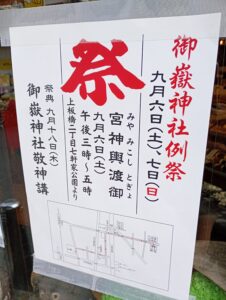 御嶽神社例祭
九月六日(土)、七日(日)
祭
みや みこし とぎょ
宮神輿渡御
九月六日(土)
午後三時〜五時
上板橋二丁目七軒家公園より
祭典 九月十八日(木)
御嶽神社敬神講